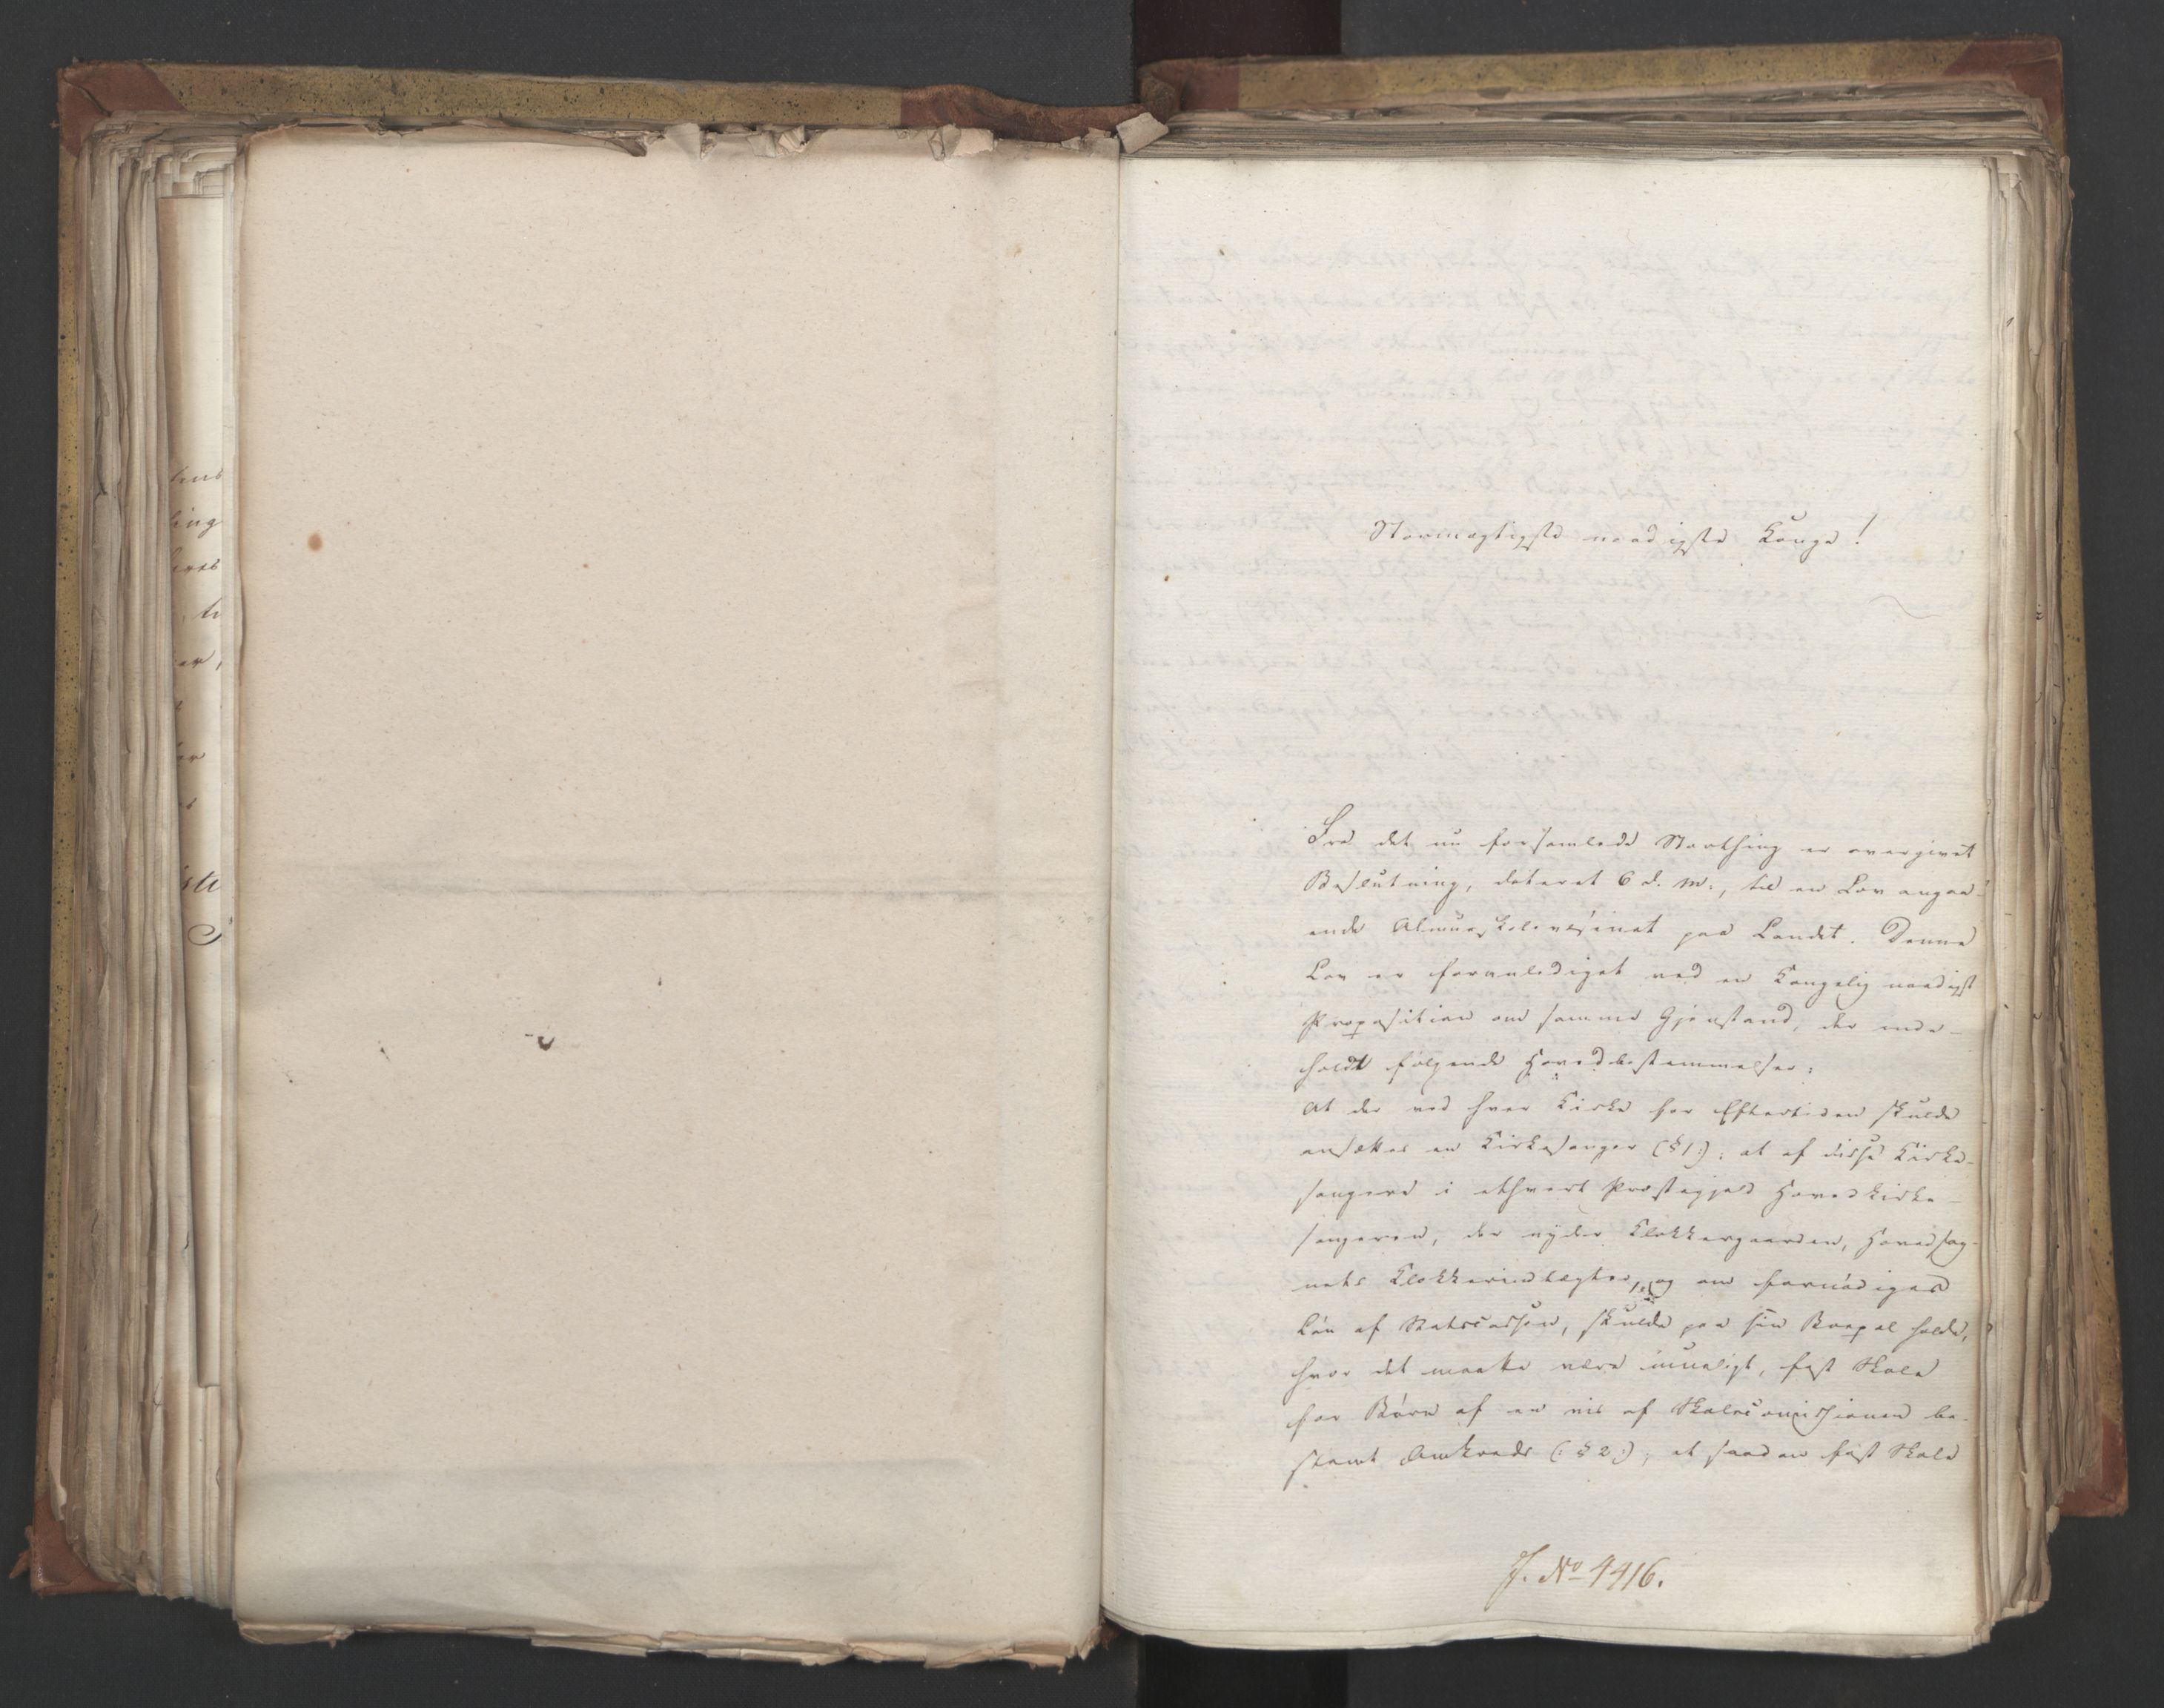 Stormægtigste naadigste Konge!
Fra det nu forsamlede Storthing er overgivet
Beslutning, dateret 6 d. M., til en Lov angaa-
ende Almueskolevæsenet paa Landet. Denne
Lov er foranlediget ved en Kongelig naadigst
Proposition om samme Gjenstand, der inde-
holdt følgende Hovedbestemmelser:
At der ved hver Kirke for Eftertiden skulde
ansættes en Kirkesanger (§ 1:); at af disse Kirke-
sangere i ethvert Præstegjeld Hovedkirke-
sangeren, der nyder Klokkergaarden, Hovedsog-
nets Klokkerindtægter, og om fornødiges
Løn af Statscassen, skulde paa sin Bopæl holde,
hvor det maatte være mueligt, fast Skole
for Børn af en vis af Skolecommissionen be-
stemt Omkreds (: § 2:); at saadan fast Skole
J. No 4416.
hus
ing
eres
ti
er,
er
ste